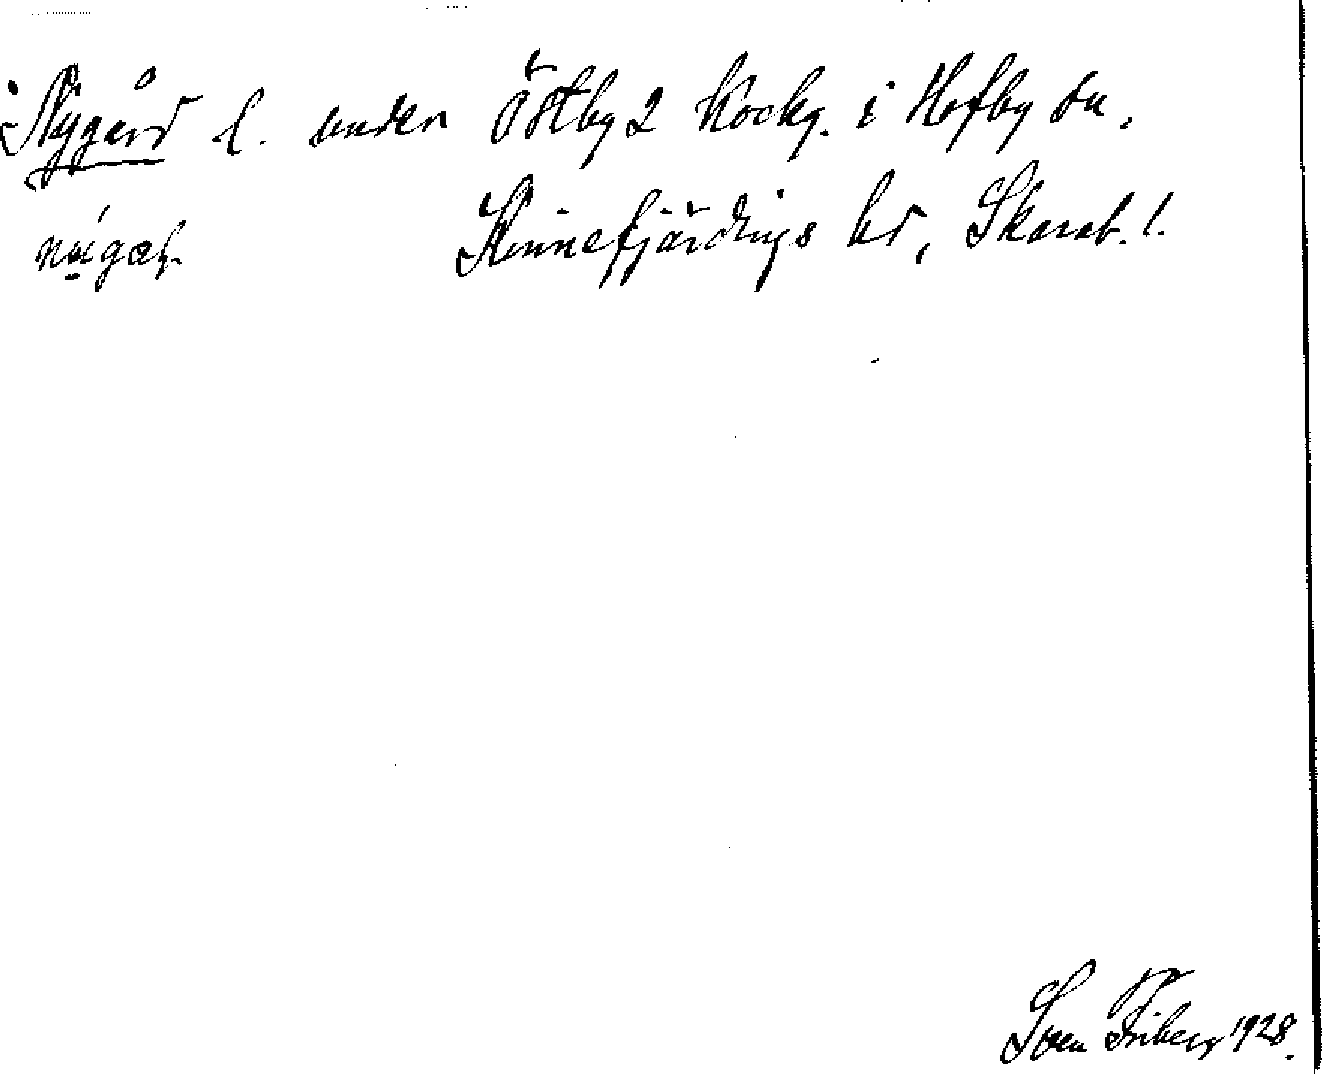 Nygård l. under Östby 2 Kockg. i Hofby sn,
Kinnefjärdings hd, Skarab. l.
Sven Friberg 1928.